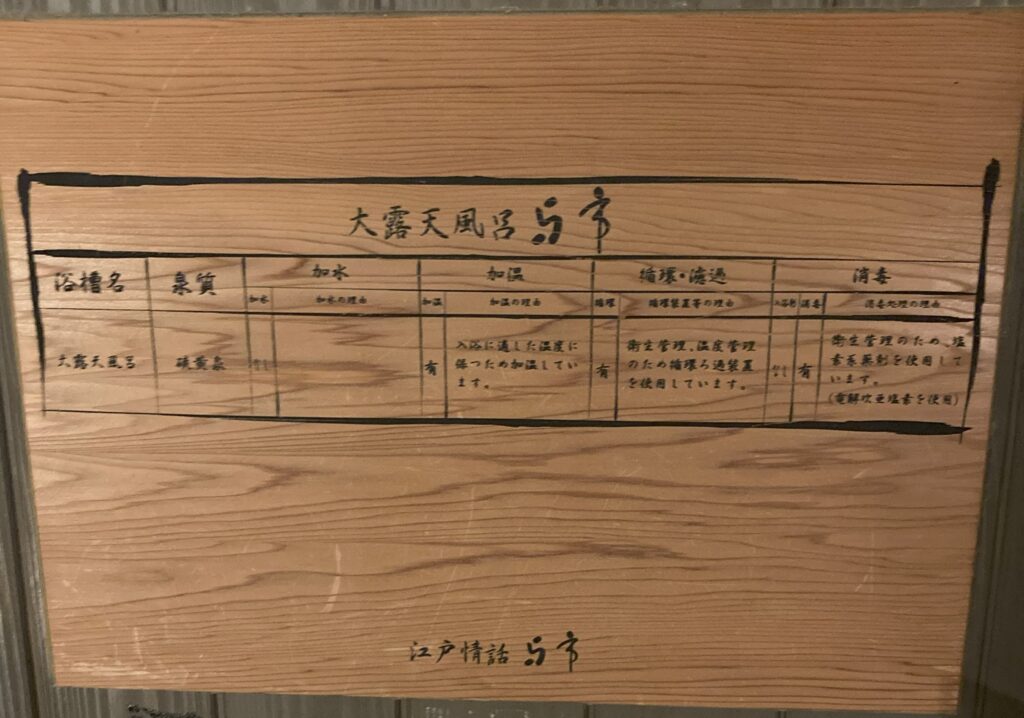 大露天風呂 与市
浴槽名 泉質 加水 加温 循環・濾過 消毒
加水 加水の理由 加温 加温の理由 循環 循環装置等の理由 入浴剤 消毒 消毒処理の理由
大露天風呂 硫黄泉 なし 有 有 なし 有
入浴に適した温度に
保つため加温してい
ます。
衛生管理、温度管理
のため循環ろ過装置
を使用しています。
衛生管理のため、塩
素系薬剤を使用して
います。
(電解次亜塩素を使用)
江戸情話 与市